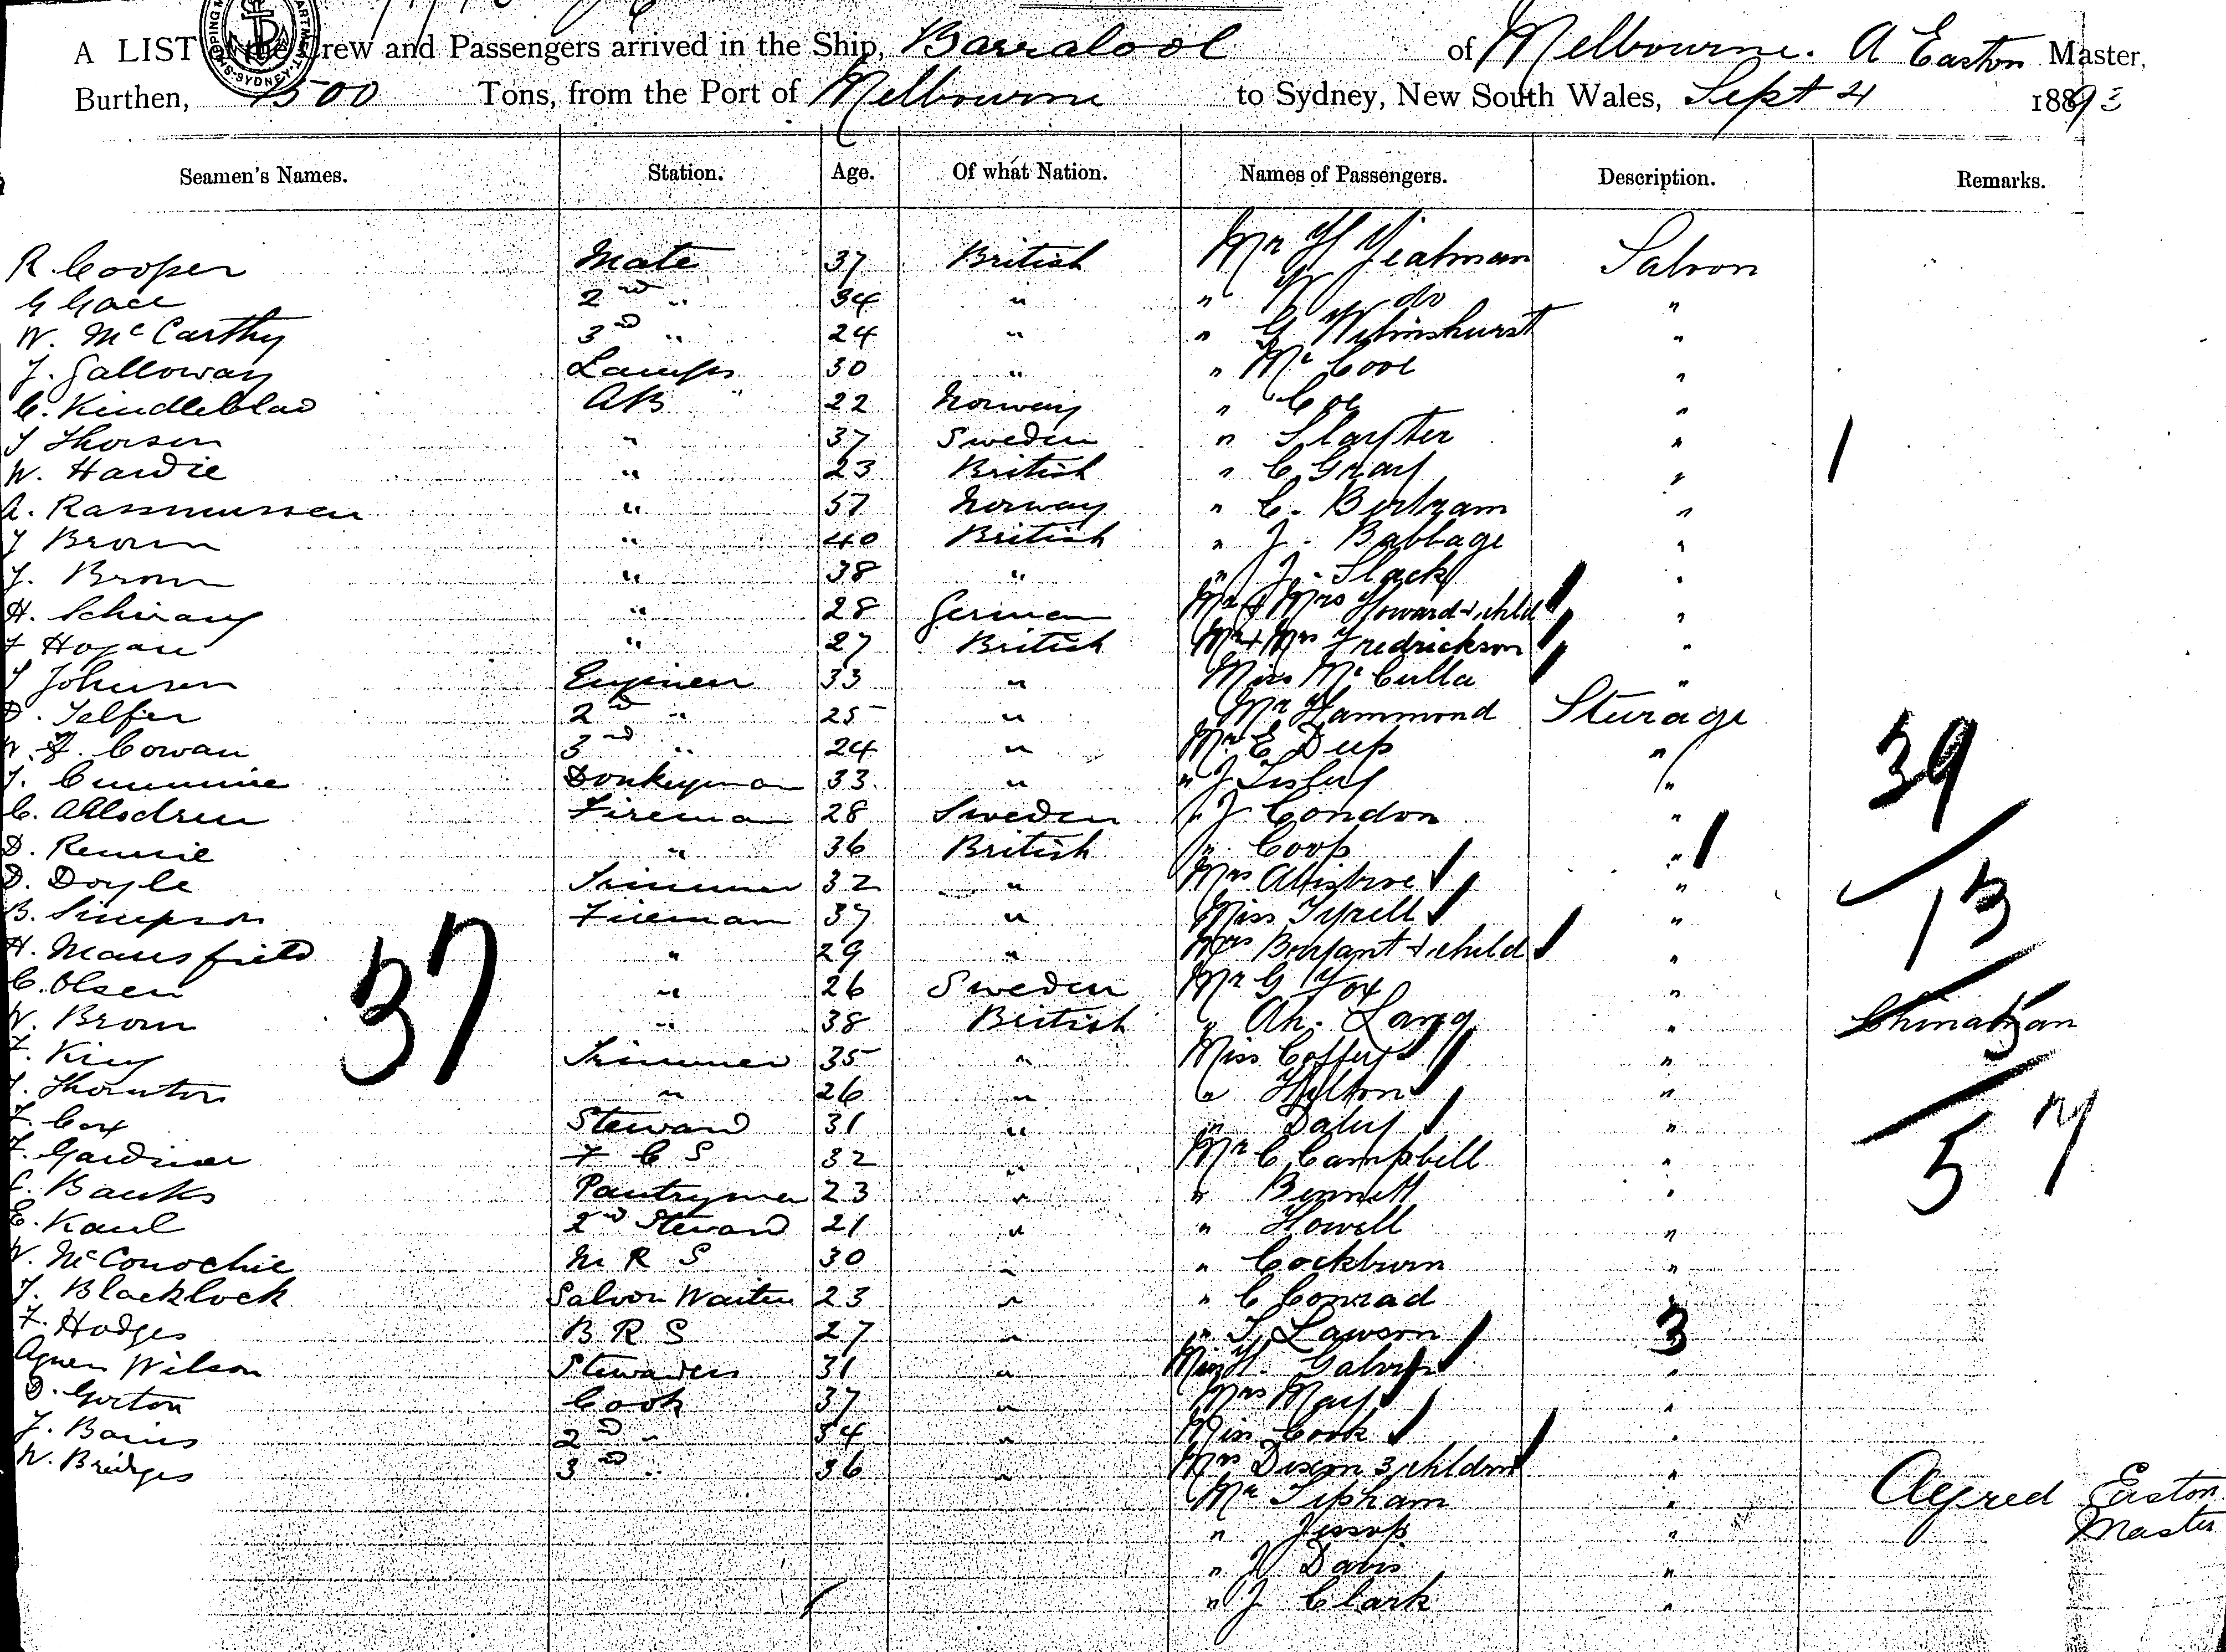 A LIST of the Crew and Passengers arrived in the Ship, Barrabool of Melbourne. A Easton Master,
Burthen, 1500 Tons, from the Port of Melbourne to Sydney, New South Wales, Sept 4 1893
Seamen's Names. Station. Age. Of what Nation. Names of Passengers. Description. Remarks.
R. Cooper Mate 37 British Mr H Yeatman Saloon
G Gace 2nd " 34 " " W do "
W. McCarthy 3rd " 24 " " G Wilmshurst "
J. Galloway Lamps 30 " " McCool "
C. Kindleblad AB 22 Norway " Coe "
J Thorsen " 37 Sweden " Slayter "
W. Hardie " 23 British " C Gray "
A. Rasmussen " 57 Norway " C. Bertram "
J Brown " 40 British " J. Babbage "
J. Brown " 38 " " J. Slack "
H. Schirang " 28 German Mr & Mrs Howard & child "
F Hogan " 27 British Mr & Mrs Fredrickson "
J Johnsen Engineer 33 " Miss McCulla "
D. Telfer 2nd " 25 " Mr Hammond Sturage
W. J. Cowan 3rd " 24 " Mr E Deep " 39
J. Cummine Donkeyman 33 " " J "
C. Fireman 28 Sweden " J Condon "
D. Rennie " 36 British " Coop "
D. Doyle Trimmer 32 " Mrs "
B. Simpson Fireman 37 " Miss Tyrell " 13
H. Mansfield " 29 " Mrs Bonfant & child "
37
C. Olsen " 26 Sweden Mr G Fox "
W. Brown " 38 British " Ah. Lang " Chinaman 5
F. King Trimmer 35 " Miss Coffey "
J. Thornton " 26 " " Hylton "
F. Cox Steward 31 " " Daly "
F. Gardiner F C S 32 " Mr C Campbell " 57
C. Banks Pantryman 23 " " Bennett "
E. Kaul 2nd Steward 21 " " Howell "
W. McConochie M R S 30 " " Cockburn "
J. Blacklock Saloon Waiter 23 " " C Conrad "
F. Hodges B R S 27 " " T Lawson 3
Agnes Wilson Stewardess 31 " Miss H. Galvin "
D. Gorton Cook 37 " Mrs May "
J. Bains 2nd " 34 " Miss Cook "
W. Bridges 3rd " 36 " Mrs Dixon 3 childrn "
Mr Tipham " Alfred Easton
" Jessop " Master
" J Davis "
" J Clark "